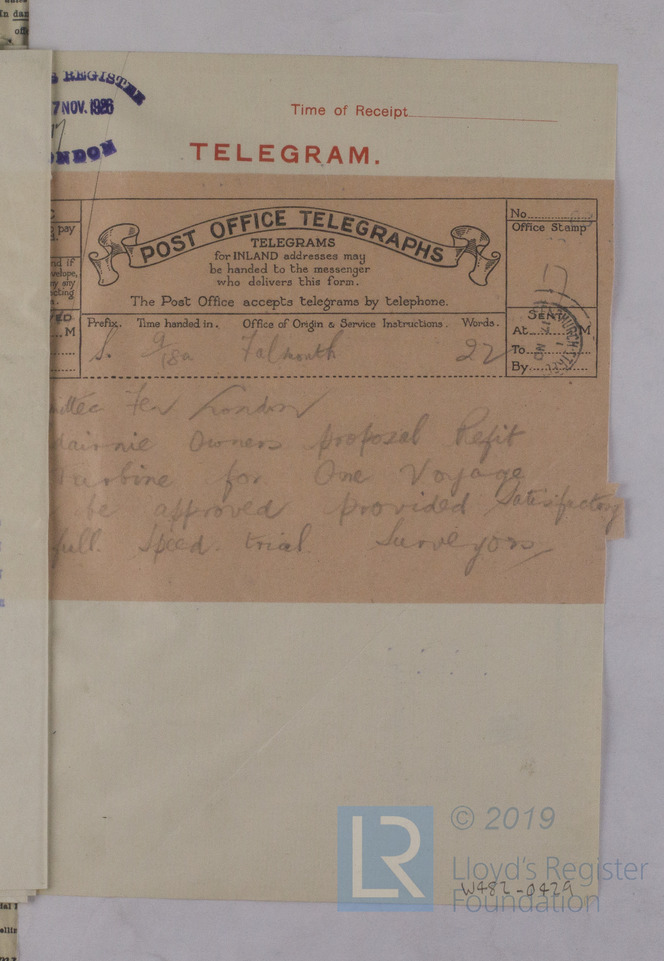 In dan
S REGISTER
7 NOV. 1926
ONDON
Time of Receipt
TELEGRAM.
pay
POST OFFICE TELEGRAPHS
TELEGRAMS
for INLAND addresses may
be handed to the messenger
who delivers this form.
The Post Office accepts telegrams by telephone.
No.
Office Stamp
nd if
velope,
ny any
ecting
VED
M
Prefix. Time handed in. Office of Origin & Service Instructions. Words.
S. 9/18a Falmouth 22
SENT
At M
To
By
CHURCH STREET
17 NO
ittee Fen London
dairnie Owners proposal Refit
Turbine for One Voyage
be approved provided Satisfactory
full Speed trial Surveyors
© 2019
LR
Lloyd's Register
Foundation
W482-0429
ellin